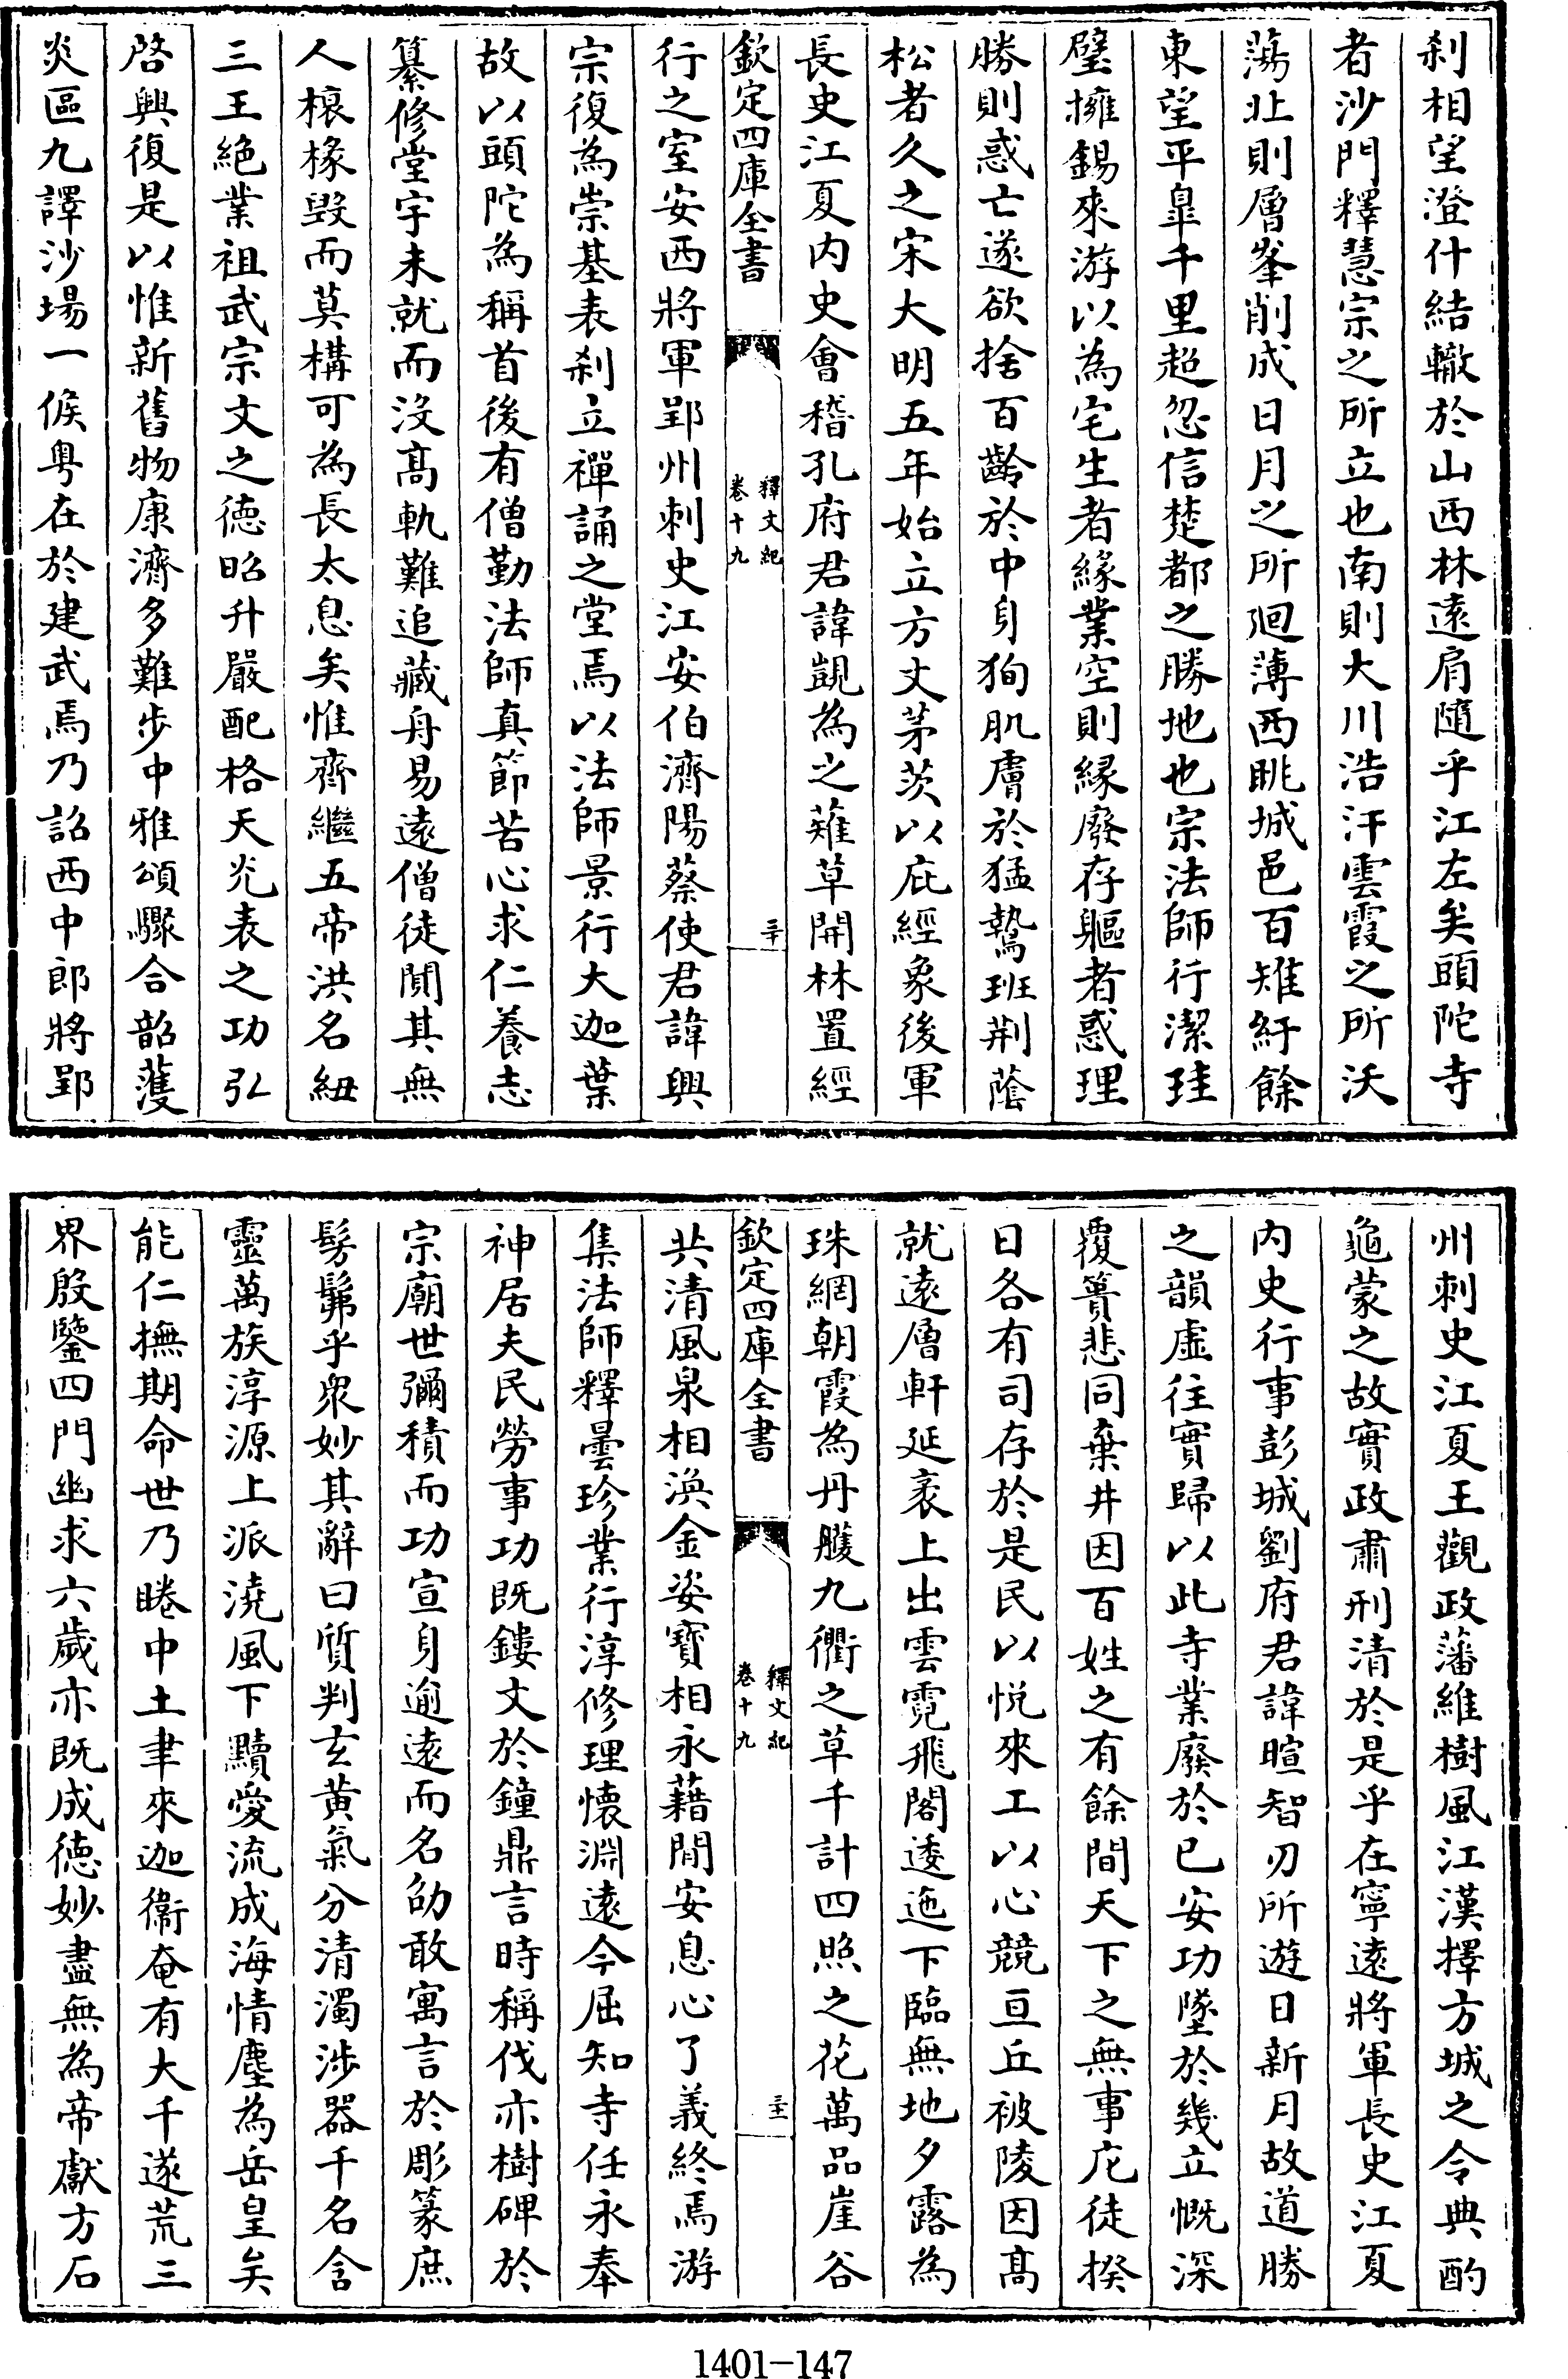 刹相望澄什結轍於山西林遠肩隨乎江左矣頭陀寺
者沙門釋慧宗之所立也南則大川浩汗雲霞之所沃
蕩北則層峯削成日月之所廻薄西眺城邑百雉紆餘
東望平臯千里超忽信楚都之勝地也宗法師行潔珪
璧擁錫來游以為宅生者緣業空則緣廢存軀者惑理
勝則惑亡遂欲捨百齡於中身狥肌膚於猛鷙班荆蔭
松者久之宋大明五年始立方丈茅茨以庇經象後軍
長史江夏内史會稽孔府君諱覬為之薙草開林置經
欽定四庫全書
釋文紀
卷十九
三十
行之室安西將軍郢州刺史江安伯濟陽蔡使君諱興
宗復為崇基表刹立禪誦之堂焉以法師景行大迦葉
故以頭陀為稱首後有僧勤法師真節苦心求仁養志
纂修堂宇未就而沒髙軌難追藏舟易遠僧徒闃其無
人榱椽毁而莫構可為長太息矣惟齊繼五帝洪名紐
三王絶業祖武宗文之德昭升嚴配格天光表之功弘
啓興復是以惟新舊物康濟多難步中雅頌驟合韶濩
炎區九譯沙場一候粤在於建武焉乃詔西中郎將郢
州刺史江夏王觀政藩維樹風江漢擇方城之令典酌
龜蒙之故實政肅刑清於是乎在寧遠將軍長史江夏
内史行事彭城劉府君諱暄智刃所遊日新月故道勝
之韻虛往實歸以此寺業廢於已安功墜於幾立慨深
覆簣悲同棄井因百姓之有餘間天下之無事庀徒揆
日各有司存於是民以悦來工以心競亘丘被陵因髙
就遠層軒延袤上出雲霓飛閣逶迤下臨無地夕露為
珠網朝霞為丹雘九衢之草千計四照之花萬品崖谷
欽定四庫全書
釋文紀
卷十九
三十一
共清風泉相渙金姿寶相永藉閒安息心了義終焉游
集法師釋曇珍業行淳修理懷淵遠今屈知寺任永奉
神居夫民勞事功既鏤文於鐘鼎言時稱伐亦樹碑於
宗廟世彌積而功宣身逾遠而名劭敢寓言於彫篆庶
髣髴乎衆妙其辭曰質判玄黄氣分清濁涉器千名含
靈萬族淳源上派澆風下黷愛流成海情塵為岳皇矣
能仁撫期命世乃睠中土聿來迦衞奄有大千遂荒三
界殷鑒四門幽求六歲亦既成徳妙盡無為帝獻方石
1401-147